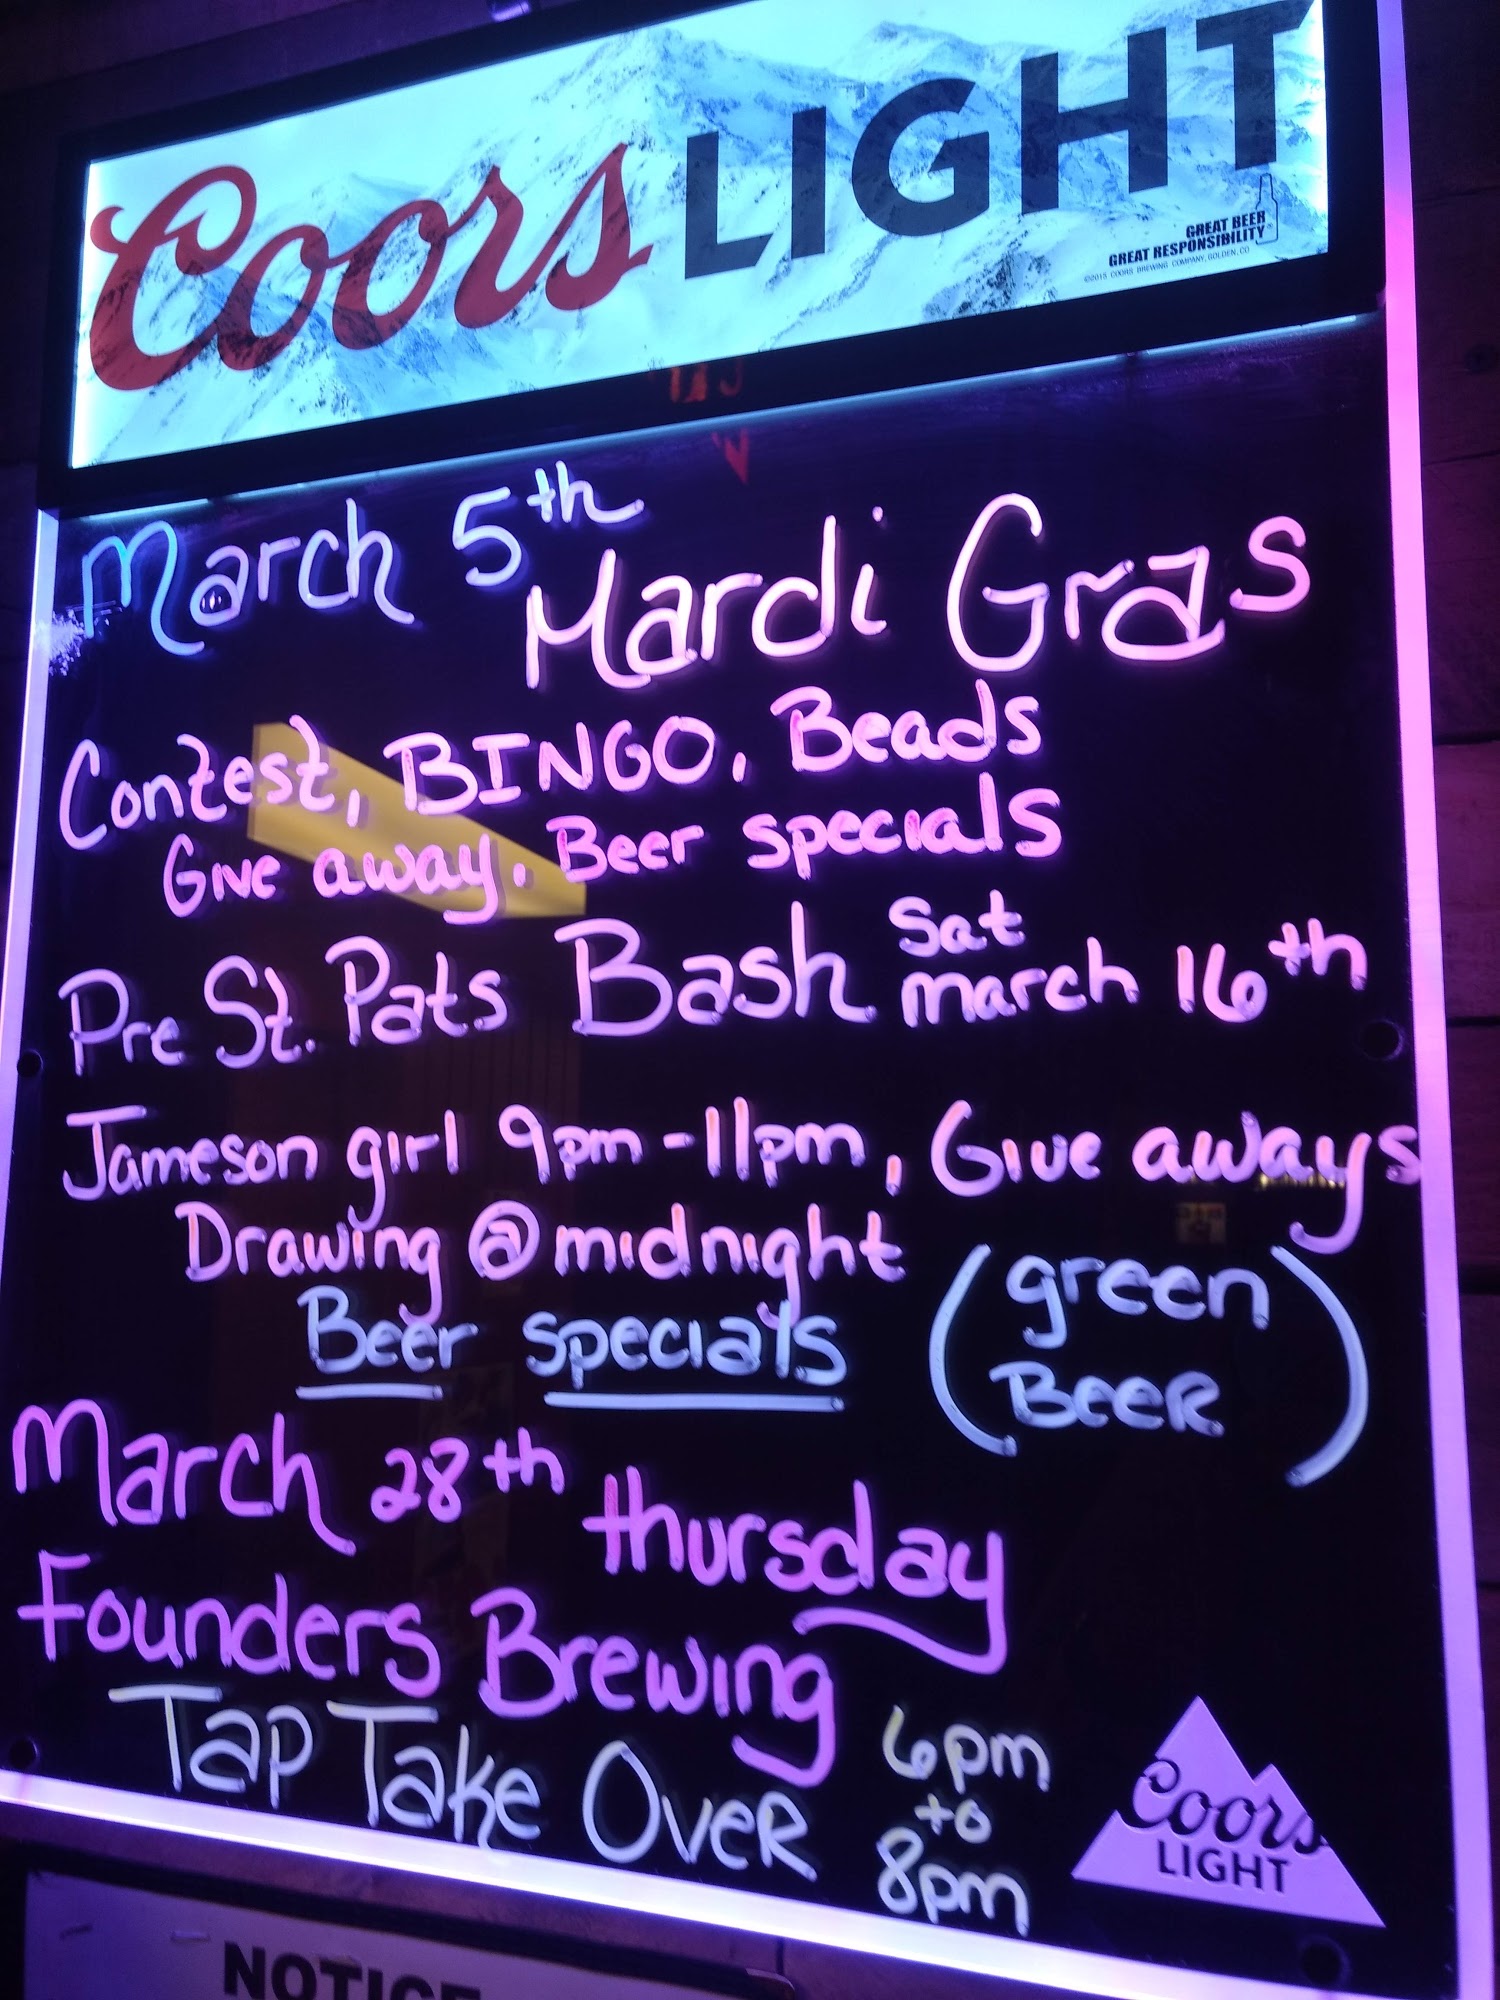 Coors LIGHT
GREAT BEER
GREAT RESPONSIBILITY®
©2015 COORS BREWING COMPANY, GOLDEN, CO
March 5th
Mardi Gras
Contest, BINGO, Beads
Give away. Beer specials
Pre St. Pats Bash Sat
march 16th
Jameson girl 9pm-11pm, Give aways
Drawing @ midnight
Beer specials (green
BEER)
March 28th thursday
Founders Brewing
Tap Take Over 6pm
to
8pm
Coors
LIGHT
NOTICE